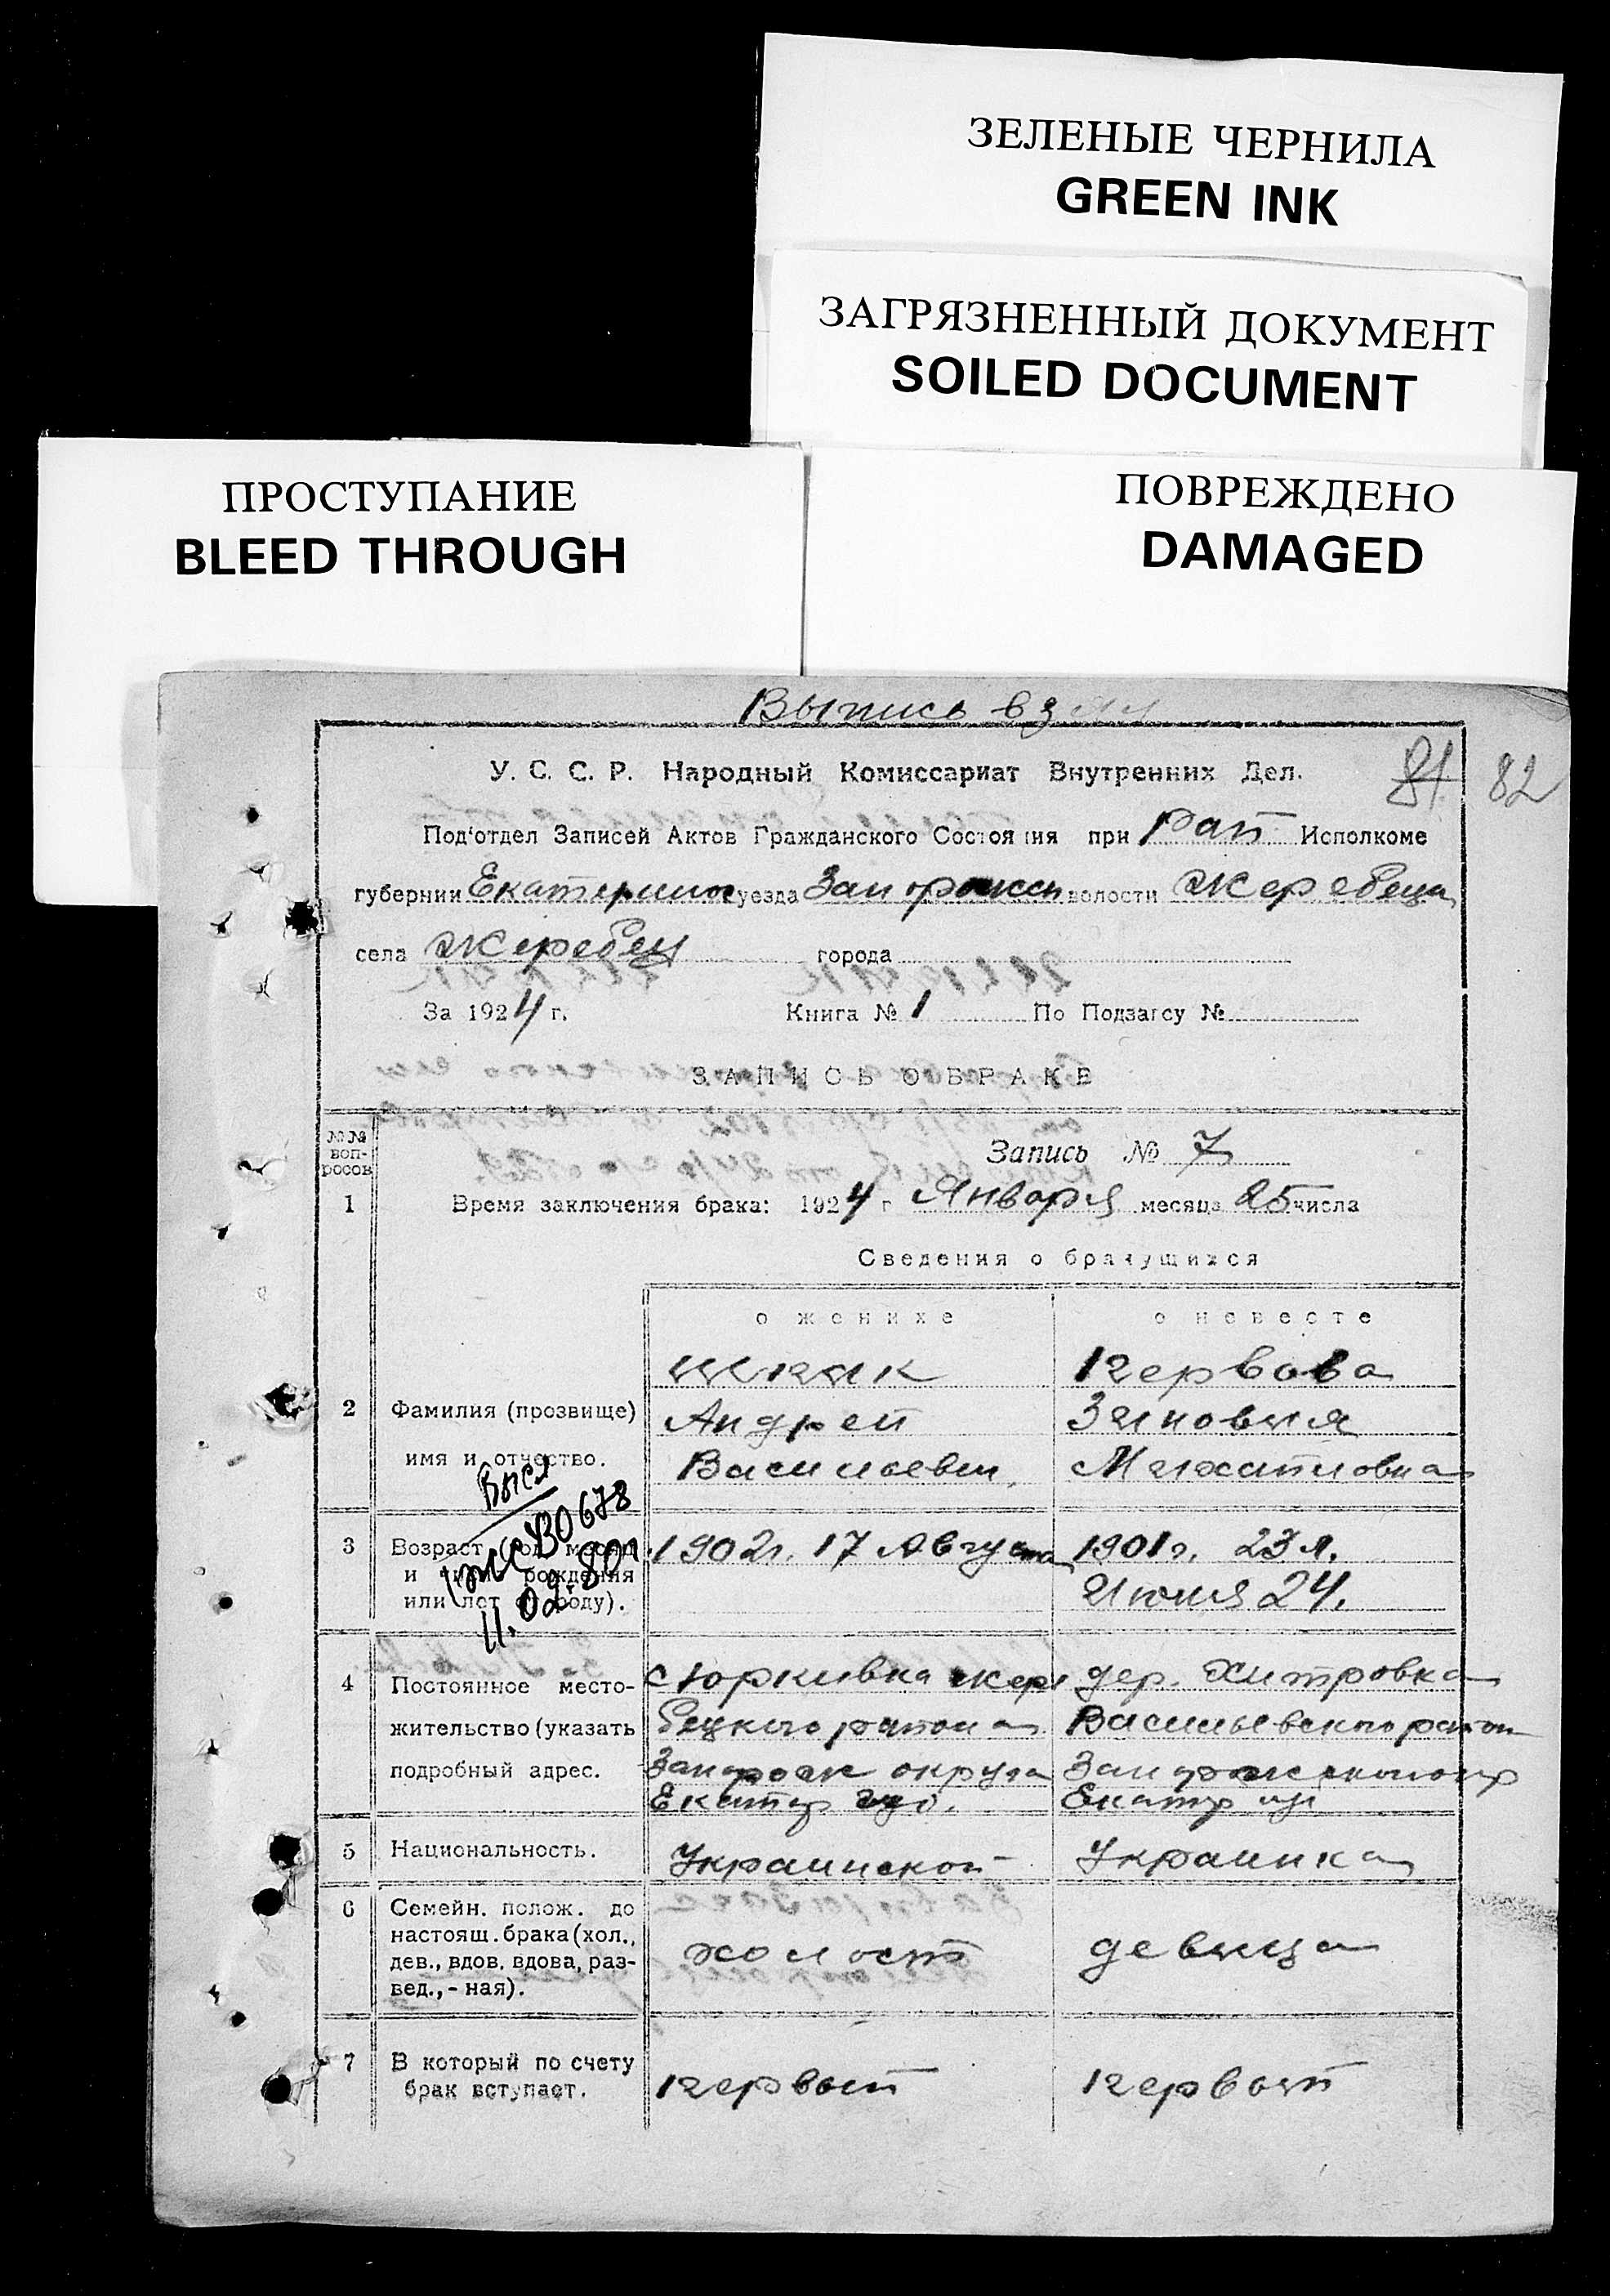 ЗЕЛЕНЫЕ ЧЕРНИЛА
GREEN INK
ЗАГРЯЗНЕННЫЙ ДОКУМЕНТ
SOILED DOCUMENT
ПРОСТУПАНИЕ
BLEED THROUGH
ПОВРЕЖДЕНО
DAMAGED
Выпись
81 82
У. С. С. Р. Народный Комиссариат Внутренних Дел.
Под'отдел Записей Актов Гражданского Состояния при Рай Исполкоме
губернии Екатерин уезда Запорожск волости Жеребец
села Жеребец города
За 1924 г. Книга № 1 По Подзагсу №
ЗАПИСЬ О БРАКЕ
№№ воп-росов
Запись № 7
1 Время заключения брака: 1924 г Января месяца 25 числа
Сведения о брачущихся
о женихе о невесте
Шкак Первова
2 Фамилия (прозвище) Андрей Зиновия
имя и отчество. Василиевич Михайловна
3 Возраст (год, месяц 1902 г. 17 Августа 1901 г. 23 л.
и рождения Июля 24.
или лет роду).
11.02.80г
4 Постоянное место- с Юркивка Жере дер. Хитровка
жительство (указать бецкого района Васильевского район
подробный адрес. Запорож округа
Екатер губ. Екатер
5 Национальность. Украинской Украинка
6 Семейн. полож. до
настоящ. брака (хол., холост девица
дев., вдов. вдова, раз-
вед., - ная).
7 В который по счету первый первый
брак вступает.